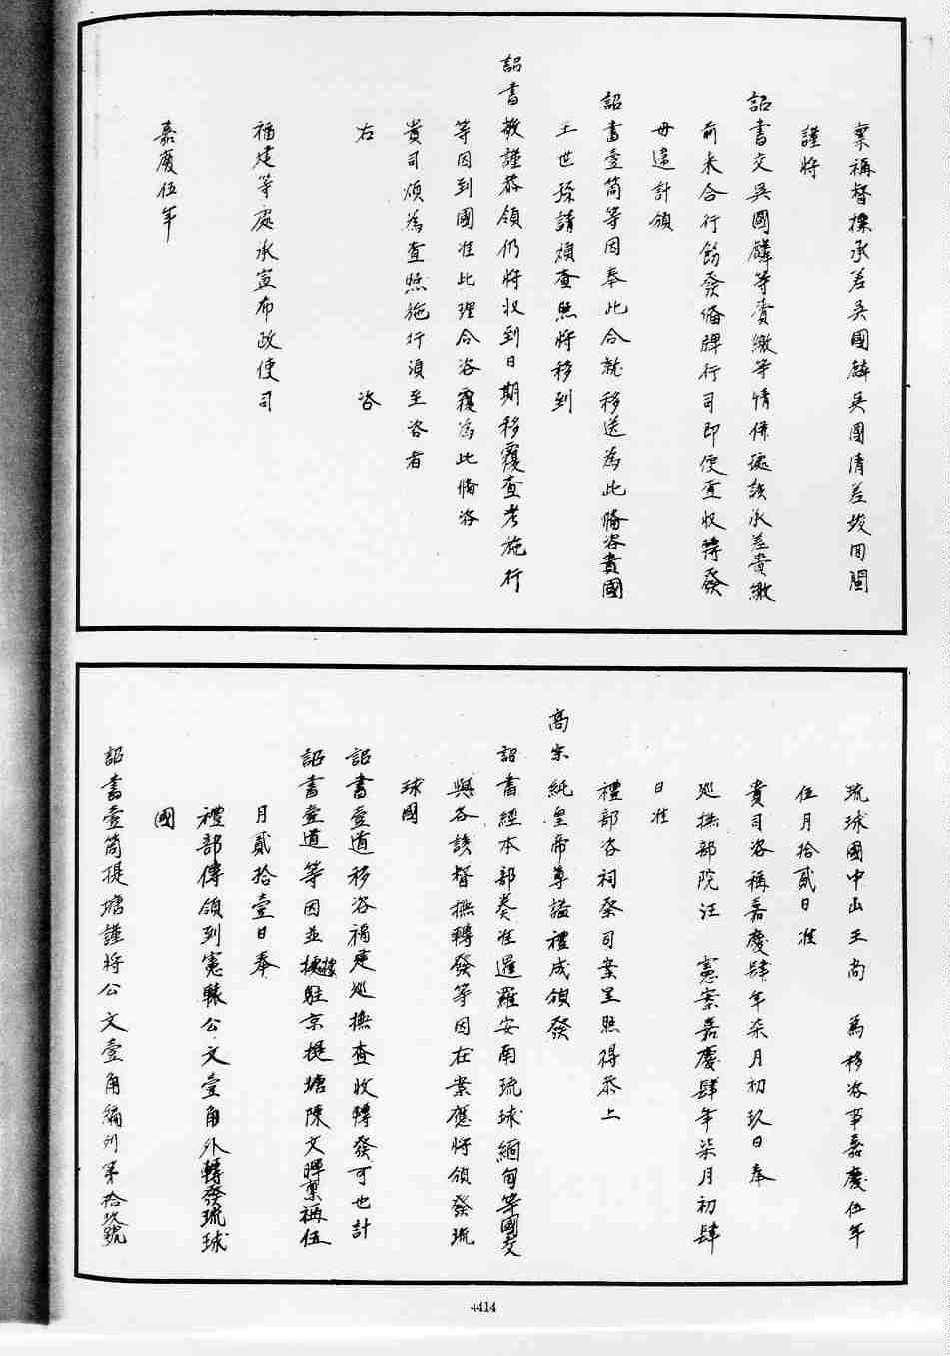 稟稱督標承差吳國麟吳國清差竣回閩
謹將
詔書交吳國麟等賫繳等情係處該承差賫繳
前來合行飭發備牌行司即便查收轉發
毋違計頒
詔書壹筒等因奉此合就移送為此備咨貴國
王世孫請煩查照將移到
詔書敬謹恭領仍將收到日期移覆查考施行
等因到國准此理合咨覆為此備咨
貴司煩為查照施行須至咨者
右 咨
福建等處承宣布政使司
嘉慶伍年
琉球國中山王尚 為移咨事嘉慶伍年
伍月拾貳日准
貴司咨稱嘉慶肆年柒月初玖日奉
巡撫部院汪 憲案嘉慶肆年柒月初肆
日准
禮部咨祠祭司案呈照得恭上
高宗純皇帝尊謚禮成頒發
詔書經本部奏准暹羅安南琉球緬甸等國交
與各該督撫轉發等因在案應將頒發琉
球國
詔書壹道移咨福建巡撫查收轉發可也計
詔書壹道等因並據駐京提塘陳文暉稟稱伍
月貳拾壹日奉
禮部傳領到憲轅公文壹角外轉發琉球
國
詔書壹筒提塘謹將公文壹角編列第拾玖號
4414